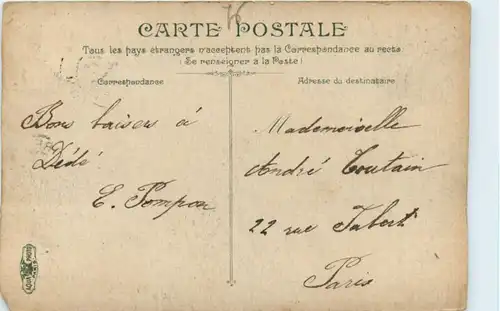 CARTE POSTALE
Tous les pays étrangers n'acceptent pas la Correspondance au recto
(Se renseigner à la Poste)
Correspondance
Adresse du destinataire
Bons baisers à
Dédé
E. Pompon
Mademoiselle
André Toutain
22 rue Tabert
Paris